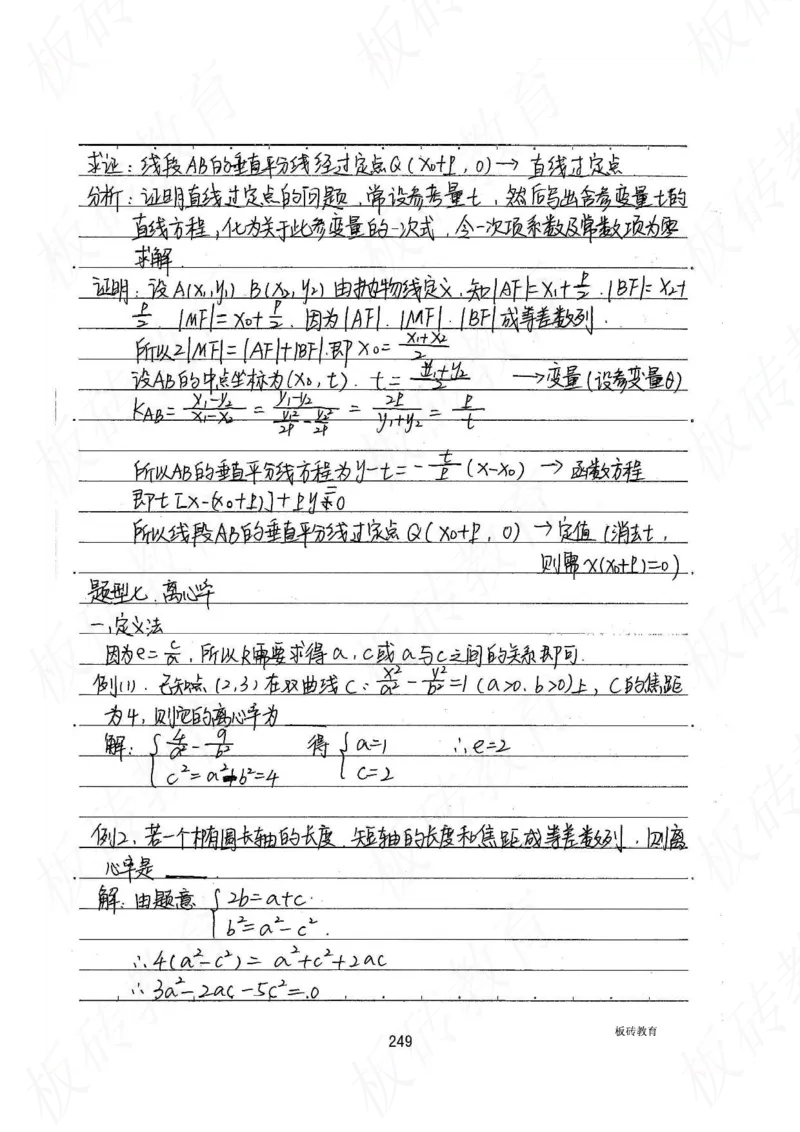 求证：线段AB的垂直平分线经过定点Q(x₀+p，0)→ 直线过定点
分析：证明直线过定点的问题，常设参考量t，然后写出含参变量t的
直线方程，化为关于此参变量的一次式，令一次项系数及常数项为零
求解
证明：设A(x₁,y₁) B(x₂,y₂) 由抛物线定义，知|AF|=x₁+p/2 . |BF|=x₂+
p/2 . |MF|=x₀+p/2 . 因为|AF| . |MF| . |BF|成等差数列.
所以2|MF|=|AF|+|BF|.即x₀=(x₁+x₂)/2
设AB的中点坐标为(x₀,t). t=(y₁+y₂)/2 →变量(设参变量θ)
K_AB=(y₁-y₂)/(x₁-x₂)=(y₁-y₂)/(y₁²/2p-y₂²/2p)=2p/(y₁+y₂)=p/t
所以AB的垂直平分线方程为y-t=-t/p(x-x₀) → 函数方程
即t[x-(x₀+p)]+py=0
所以线段AB的垂直平分线过定点Q(x₀+p，0) →定值(消去t，
则需x(x₀+p)=0)
题型七、离心率
一、定义法
因为e=c/a，所以只需要求得a，c或a与c之间的关系即可.
例(1). 已知点(2,3)在双曲线C：x²/a²-y²/b²=1(a>0.b>0)上，C的焦距
为4，则它的离心率为____
解：{4/a²-9/b² 得{a=1 ∴e=2
c²=a²+b²=4 c=2
例2、若一个椭圆长轴的长度、短轴的长度和焦距成等差数列，则离
心率是____.
解：由题意{2b=a+c.
b²=a²-c².
∴4(a²-c²)=a²+c²+2ac
∴3a²-2ac-5c²=0
板砖教育
249